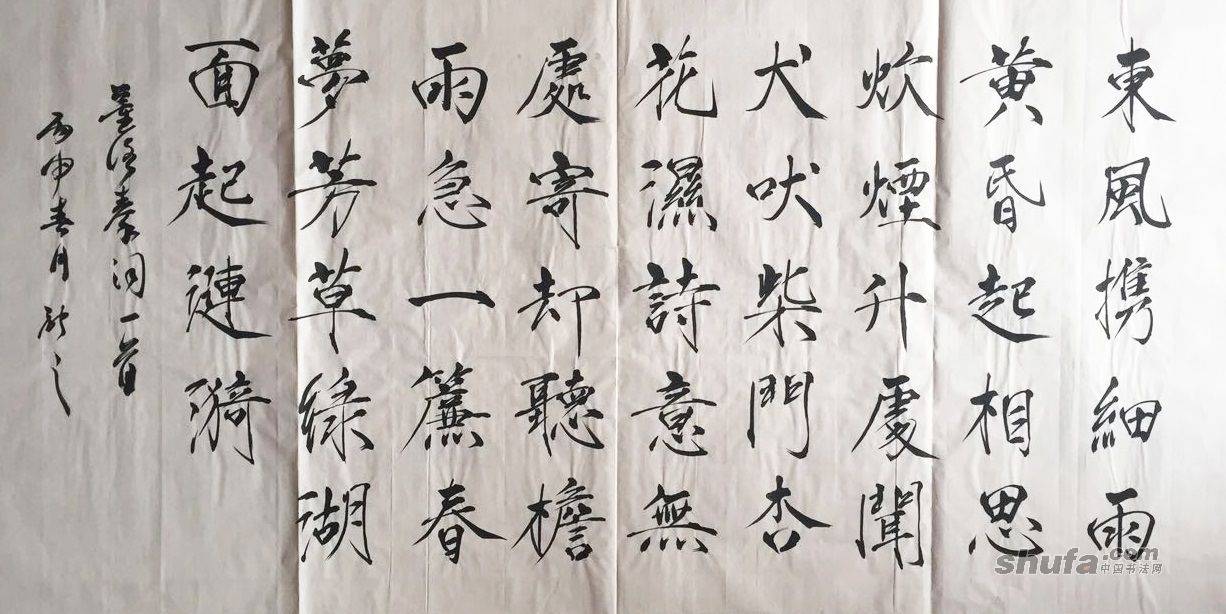 東風攜細雨
黄昏起相思
炊煙升處聞
犬吠柴門杏
花濕詩意無
處寄却聽檐
雨急一簾春
夢芳草綠湖
面起漣漪
秦词一首
丙申春月
shufa.com
中国书法网